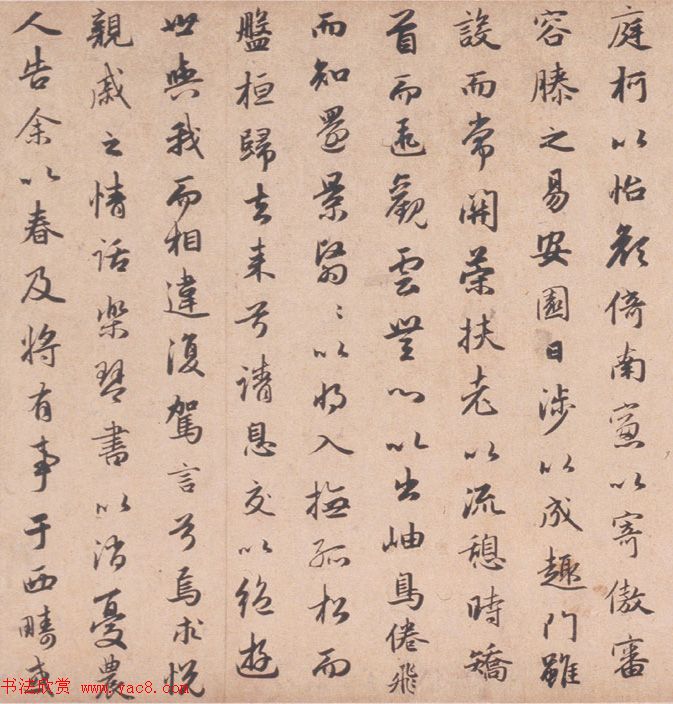 庭柯以怡顏倚南窓以寄傲審
容膝之易安園日涉以成趣門雖
設而常關策扶老以流憩時矯
首而遐觀雲無心以出岫鳥倦飛
而知還景翳〻以將入撫孤松而
盤桓歸去来兮請息交以絕遊
世與我而相違復駕言兮焉求悅
親戚之情話樂琴書以消憂農
人告余以春及將有事于西疇或
书法欣赏 www.yac8.com